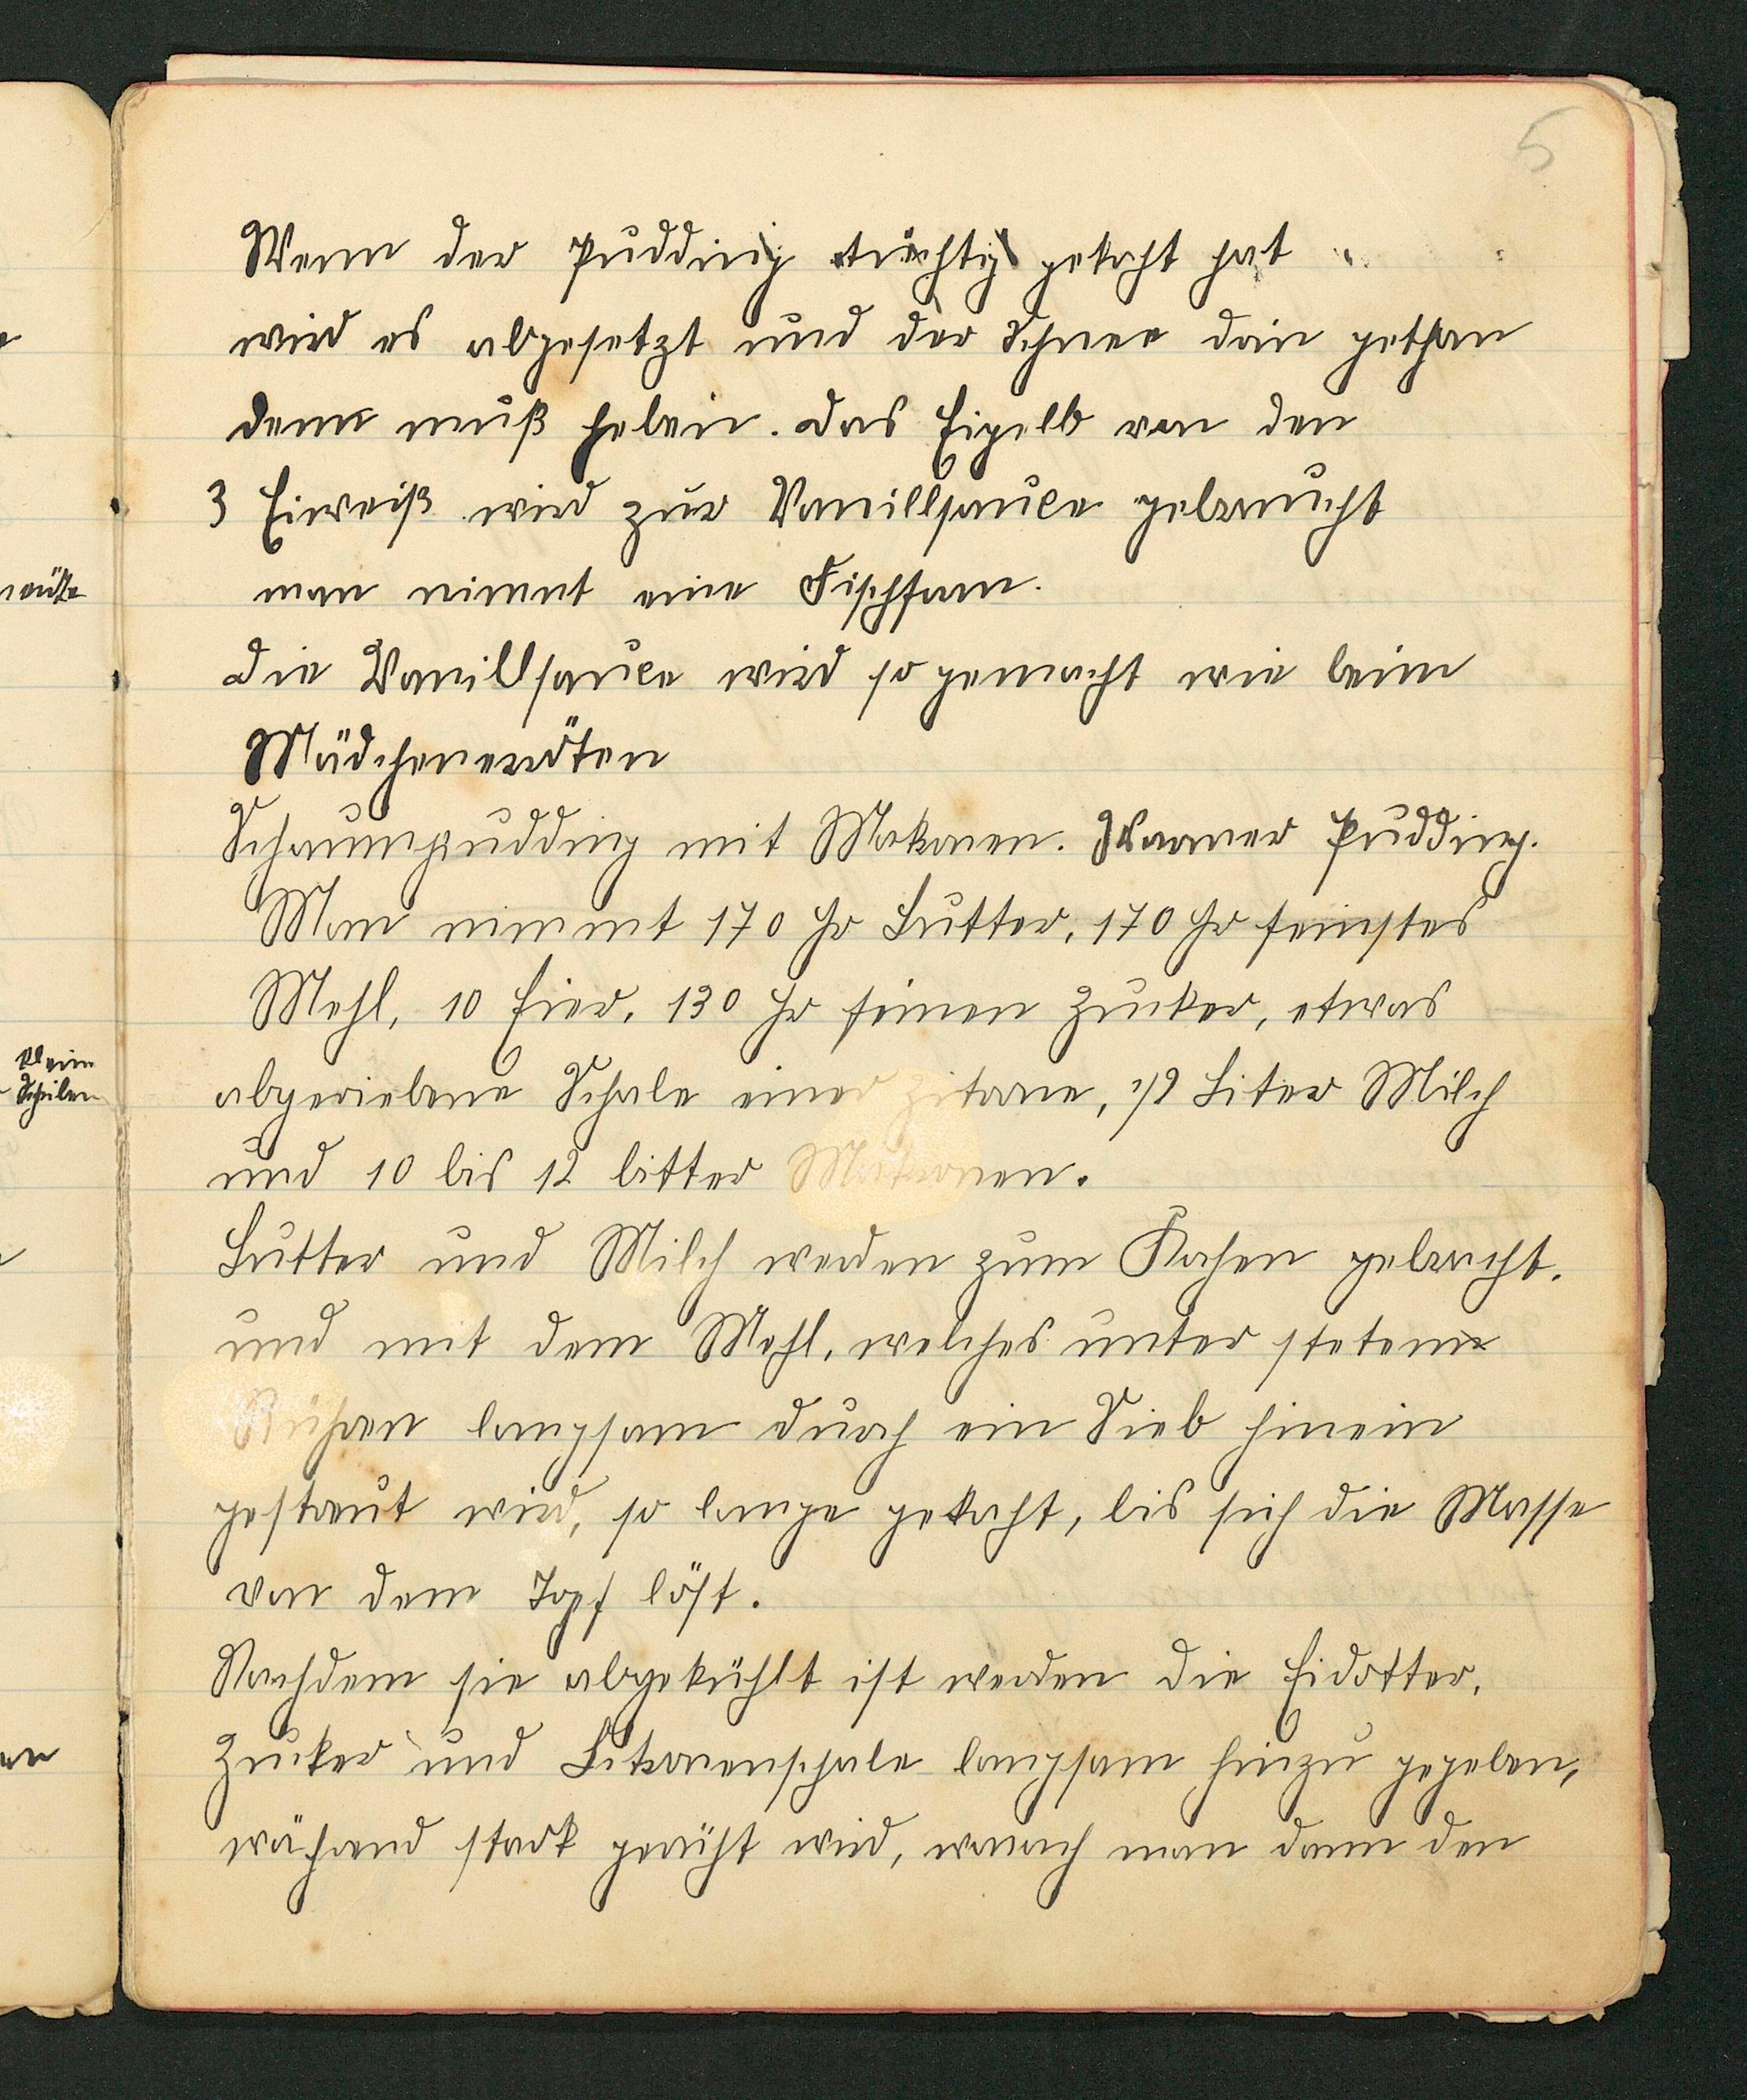 5
Wenn der Pudding tüchtig gekocht hat
wird es abgesetzt und der Schnee drin gethan
denn muß haben. Das Eigelb von den
3 Eiweiß wird zur Vanillsauce gebraucht
man nimmt eine Fischform.
Die Vanillsauce wird so gemacht wie beim
Mädchenerröten
Schaumpudding mit Makronen. Warmer Pudding.
Man nimmt 170 Gr Butter, 170 Gr feinstes
Mehl, 10 Eier, 130 Gr feinen Zucker, etwas
abgeriebene Schale einer Zitrone, 1/2 Liter Milch
und 10 bis 12 bitter Makronen.
Butter und Milch werden zum Kochen gebracht,
und mit dem Mehl, welches unter stetem
Rühren langsam durch ein Sieb hinein
gestreut wird, so lange gekocht, bis sich die Masse
von dem Topf löst.
Nachdem sie abgekühlt ist werden die Eidotter,
Zucker und Zitronenschale langsam hinzu gegeben,
während stark gerührt wird, wonach man dann den
klein